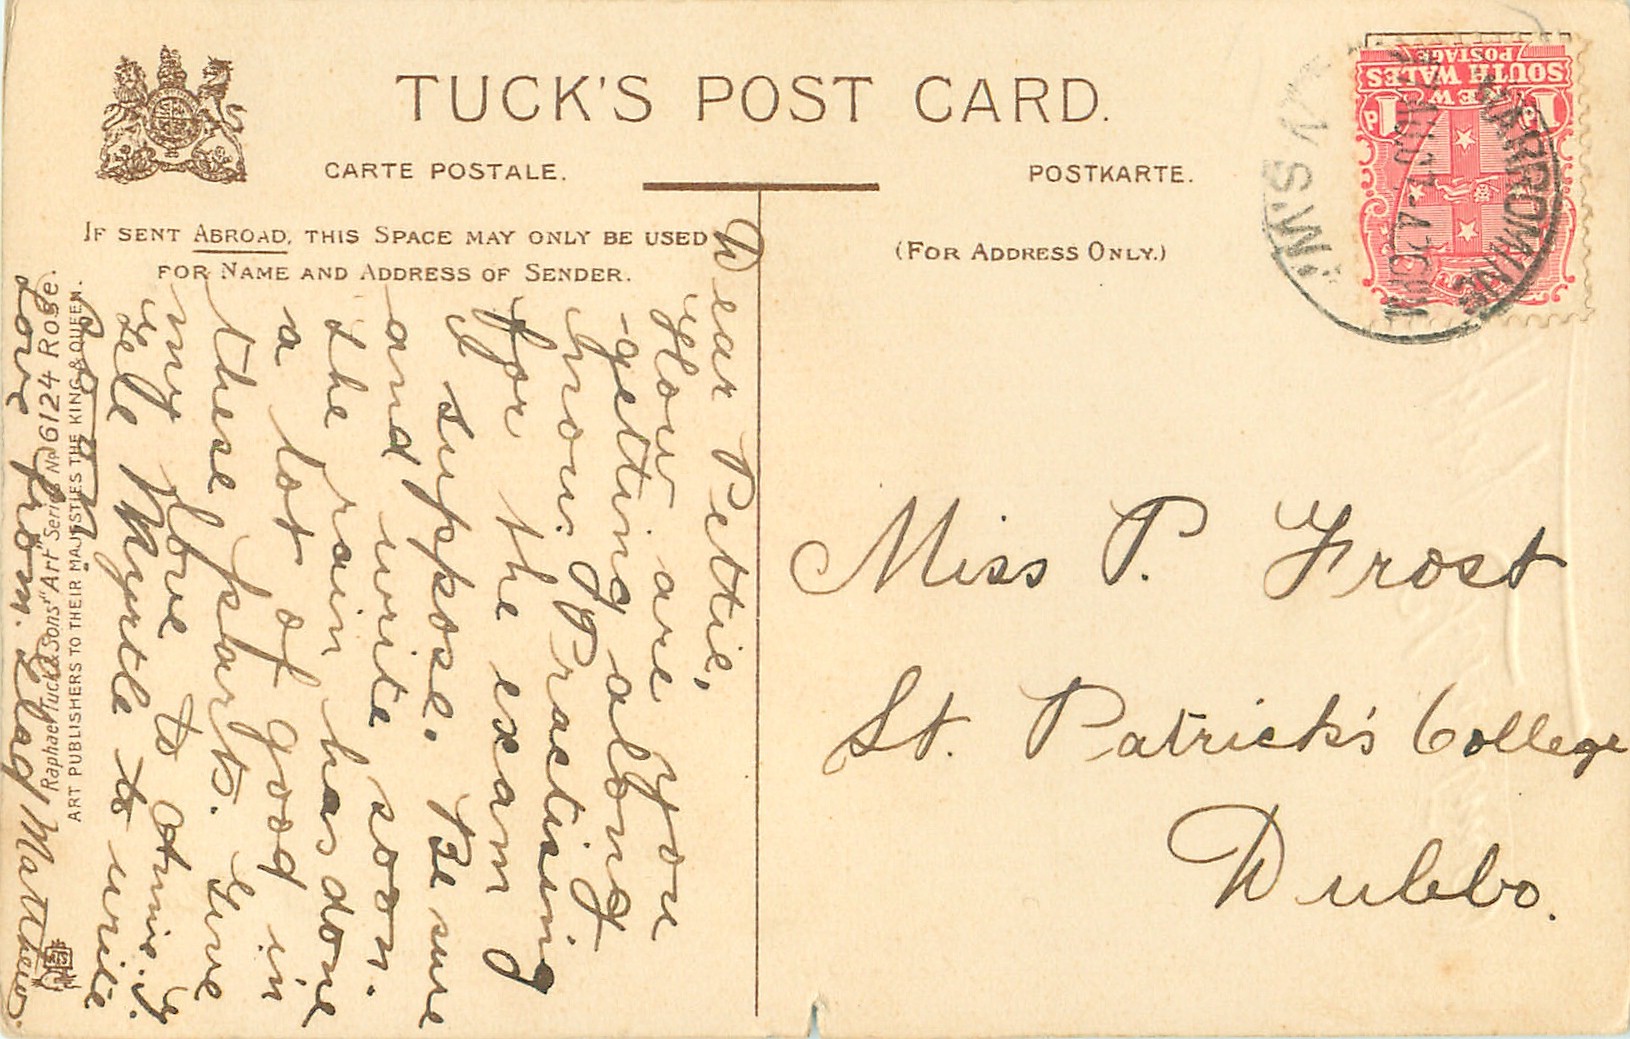 TUCK'S POST CARD.
CARTE POSTALE.
POSTKARTE.
IF SENT ABROAD, THIS SPACE MAY ONLY BE USED
FOR NAME AND ADDRESS OF SENDER.
(FOR ADDRESS ONLY.)
NEW
SOUTH WALES
POSTAGE
1 D
1 D
NARROMINE
N.S.W.
Dear Pettie,
How are you
getting along
now. Practising
for the exam
I suppose. Be sure
and write soon.
The rain has done
a lot of good in
these parts. Give
my love to Annie.
tell Myrtle to write
Love from
Miss P. Frost
St. Patrick's College
Dubbo.
Raphael Tuck & Sons' "Art" Series No 6124 Rose.
ART PUBLISHERS TO THEIR MAJESTIES THE KING & QUEEN.